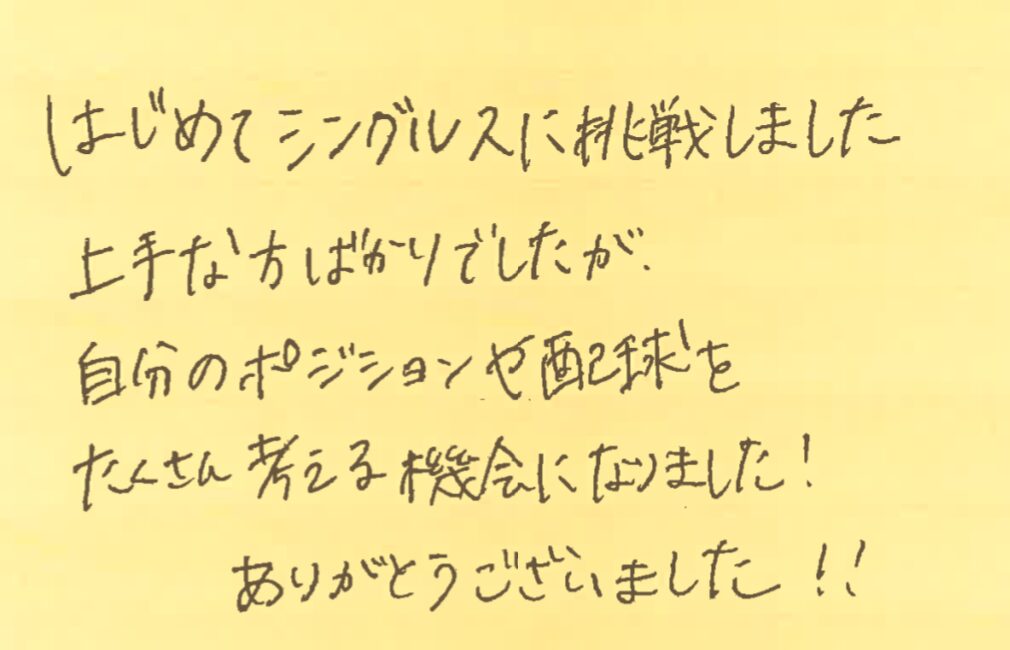 はじめてシングルスに挑戦しました
上手な方ばかりでしたが、
自分のポジションや配球を
たくさん考える機会になりました!
ありがとうございました!!